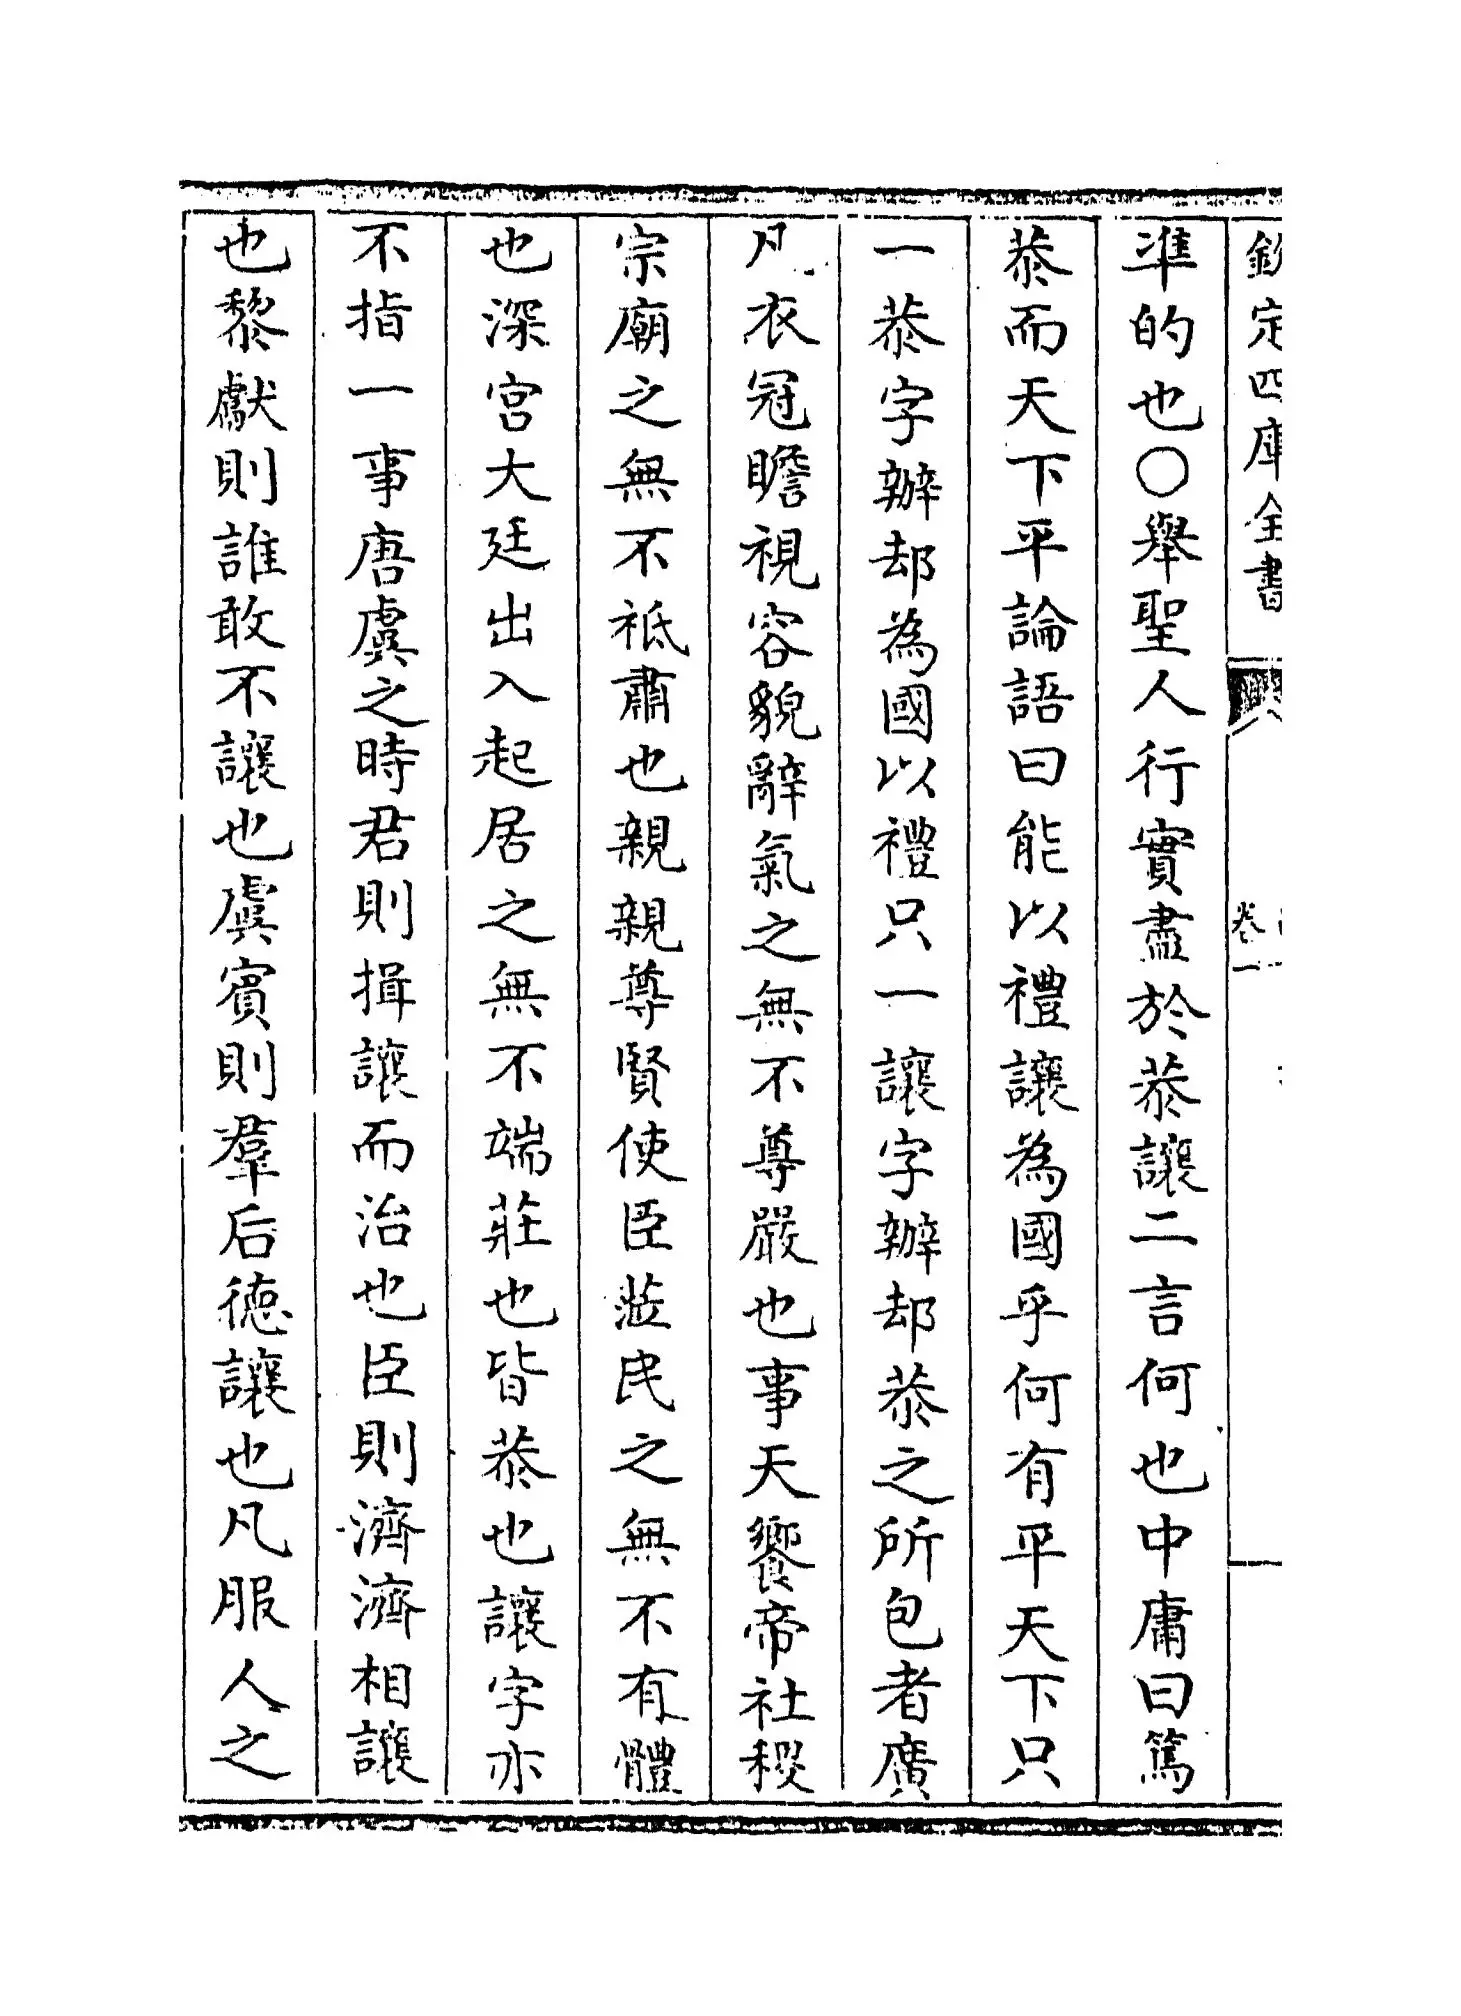 欽定四庫全書
卷一
準的也○舉聖人行實盡於恭讓二言何也中庸曰篤
恭而天下平論語曰能以禮讓為國乎何有平天下只
一恭字辦却為國以禮只一讓字辦却恭之所包者廣
凡衣冠瞻視容貌辭氣之無不尊嚴也事天饗帝社稷
宗廟之無不祗肅也親親尊賢使臣蒞民之無不有體
也深宮大廷出入起居之無不端莊也皆恭也讓字亦
不指一事唐虞之時君則揖讓而治也臣則濟濟相讓
也黎獻則誰敢不讓也虞賓則羣后德讓也凡服人之